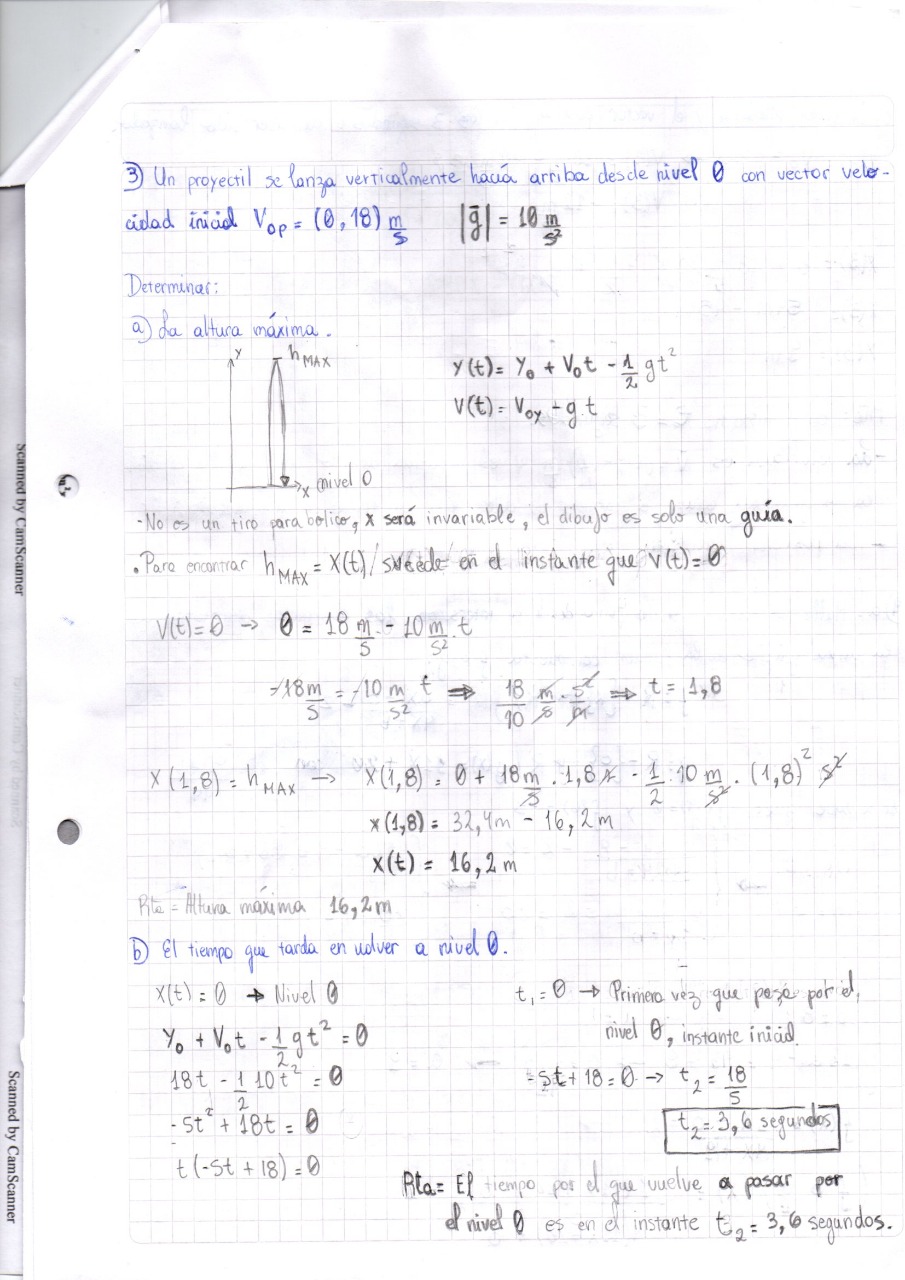 3) Un proyectil se lanza verticalmente hacia arriba desde nivel 0 con vector velo-
cidad inicial V₀ₚ = (0, 18) m/s |g̅| = 10 m/s²
Determinar:
a) La altura máxima.
y hMAX
Y(t) = Y₀ + V₀t - 1/2 gt²
V(t) = V₀y - g.t
x (nivel 0
- No es un tiro parabolico, x será invariable, el dibujo es solo una guía.
• Para encontrar hMAX = X(t) / sucede en el instante que V(t) = 0
V(t) = 0 → 0 = 18 m/s - 10 m/s² . t
-18 m/s = -10 m/s² t ⇒ 18/10 m/s . s²/m ⇒ t = 1,8
X(1,8) = hMAX → X(1,8) = 0 + 18 m/s . 1,8 s - 1/2 . 10 m/s² . (1,8)² s²
x(1,8) = 32,4m - 16,2m
x(t) = 16,2m
Rta = Altura máxima 16,2m
b) El tiempo que tarda en volver a nivel 0.
X(t) = 0 → Nivel 0
Y₀ + V₀t - 1/2 gt² = 0
18t - 1/2 10t² = 0
-5t² + 18t = 0
t(-5t + 18) = 0
t₁ = 0 → Primera vez que pasa por el
nivel 0, instante inicial.
-5t + 18 = 0 → t₂ = 18/5
t₂ = 3,6 segundos
Rta = El tiempo por el que vuelve a pasar por
el nivel 0 es en el instante t₂ = 3,6 segundos.
Scanned by CamScanner
Scanned by CamScanner